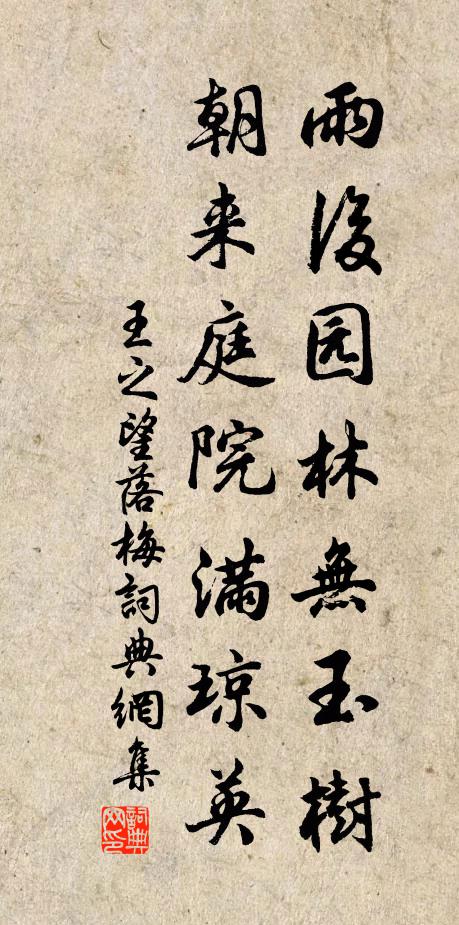 雨後园林無玉樹
朝来庭院满琼英
王之望落梅詞典網集
詞典网印